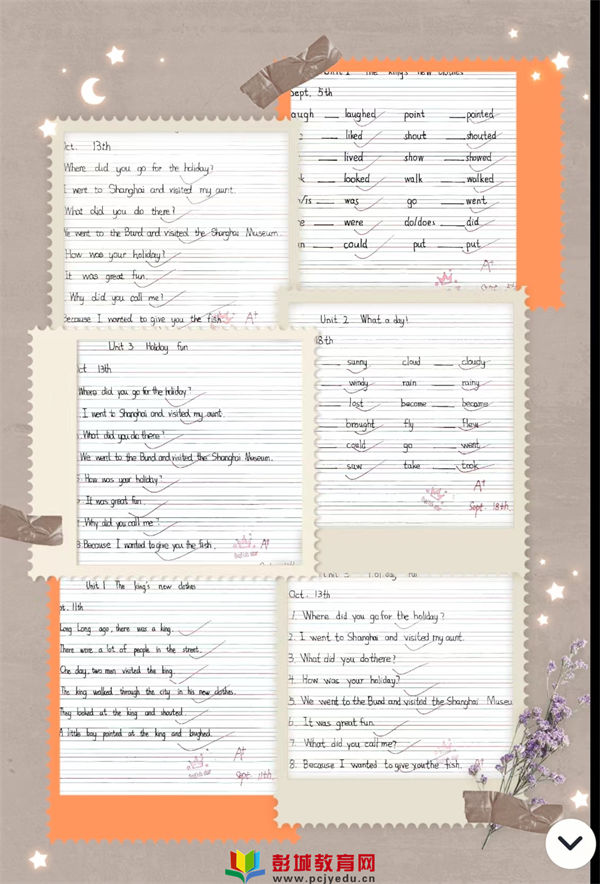 Unit 1 The king's new clothes
Sept. 5th
laughed point pointed
liked shout shouted
lived show showed
looked walk walked
was go went
were do/does did
could put put
A+
13th
Where did you go for the holiday?
I went to Shanghai and visited my aunt.
What did you do there?
We went to the Bund and visited the Shanghai Museum.
How was your holiday?
It was great fun.
Why did you call me?
Because I wanted to give you the fish.
A+
Unit 2 What a day!
18th
sunny cloud cloudy
windy rain rainy
lost become became
brought fly flew
could go went
saw take took
A+
Sept. 18th
Unit 3 Holiday fun
Oct 13th
Where did you go for the holiday?
I went to Shanghai and visited my aunt.
What did you do there?
We went to the Bund and visited the Shanghai Museum.
How was your holiday?
It was great fun.
Why did you call me?
8. Because I wanted to give you the fish.
A+
Unit 1 The king's new clothes
11th
Long Long ago, there was a king.
There were a lot of people in the street.
One day, two men visited the king.
The king walked through the city in his new clothes.
They looked at the king and shouted.
A little boy pointed at the king and laughed.
A+
Sept 11th
Oct. 13th
1. Where did you go for the holiday?
2. I went to Shanghai and visited my aunt.
3. What did you do there?
4. How was your holiday?
5. We went to the Bund and visited the Shanghai Museu
6. It was great fun.
7. What did you call me?
8. Because I wanted to give you the fish.
A+
彭城教育网
www.pcjyedu.cn